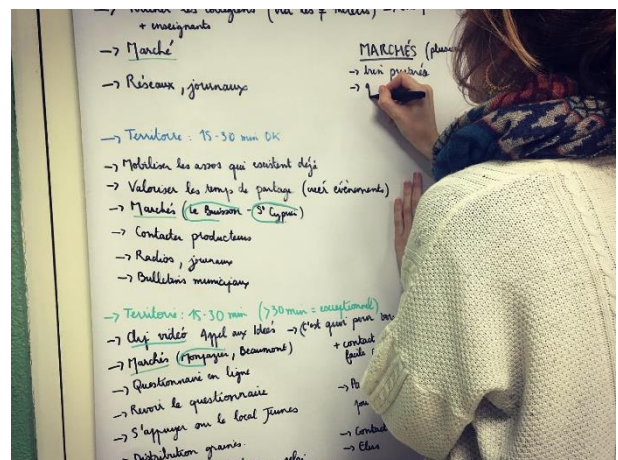 + enseignants
-> Marché
-> Réseaux, journaux
-> Territoire : 15-30 min OK
-> Mobiliser les assos qui existent déjà
-> Valoriser les temps de partage (créer évènements)
-> Marchés (Le Buisson - St Cyprien)
-> Contacter producteurs
-> Radios, journaux
-> Bulletins municipaux
-> Territoire : 15-30 min (>30 min = exceptionnel)
-> Clip vidéo Appel aux Idées -> (c'est quoi pour
-> Marchés (Monpazier, Beaumont)
-> Questionnaire en ligne
-> Revoir le questionnaire
-> S'appuyer sur le local Jeunes
-> Distribution graines.
MARCHÉS
-> bien préparés
->
+ contact
-> Contact
-> Elus